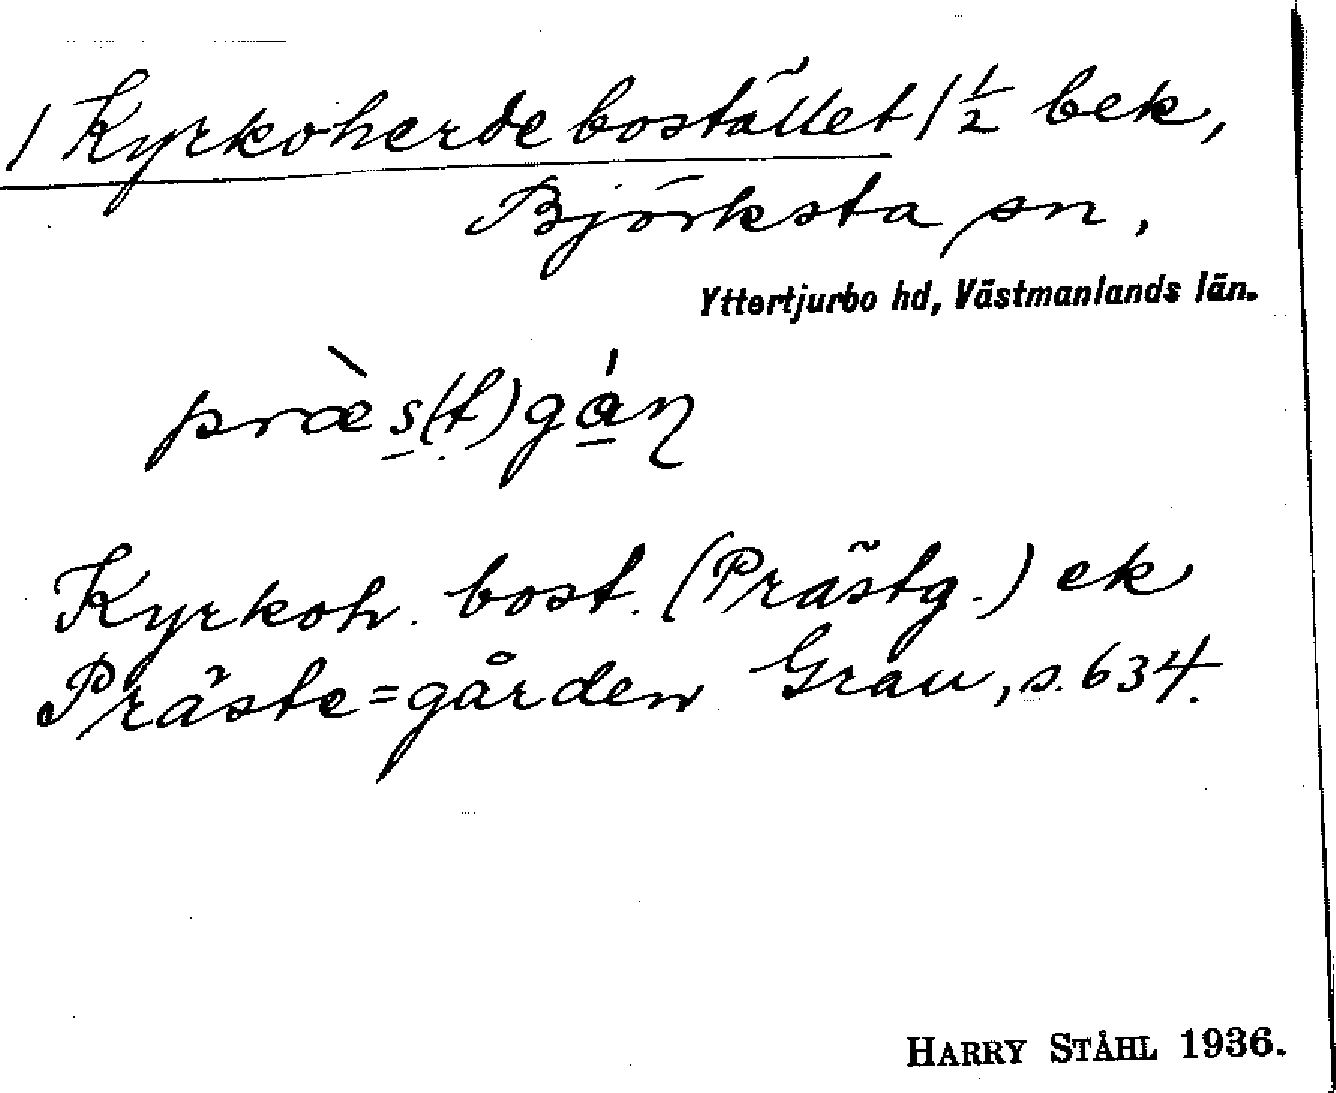 / Kyrkoherdebostället / 1/2 bek,
Björksta sn.
Yttertjurbo hd, Västmanlands län.
præ̀s(t)gáɳ
Kyrkoh. bost. (Prästg.) ek
Präste=gården Grau, s. 634.
HARRY STÅHL 1936.